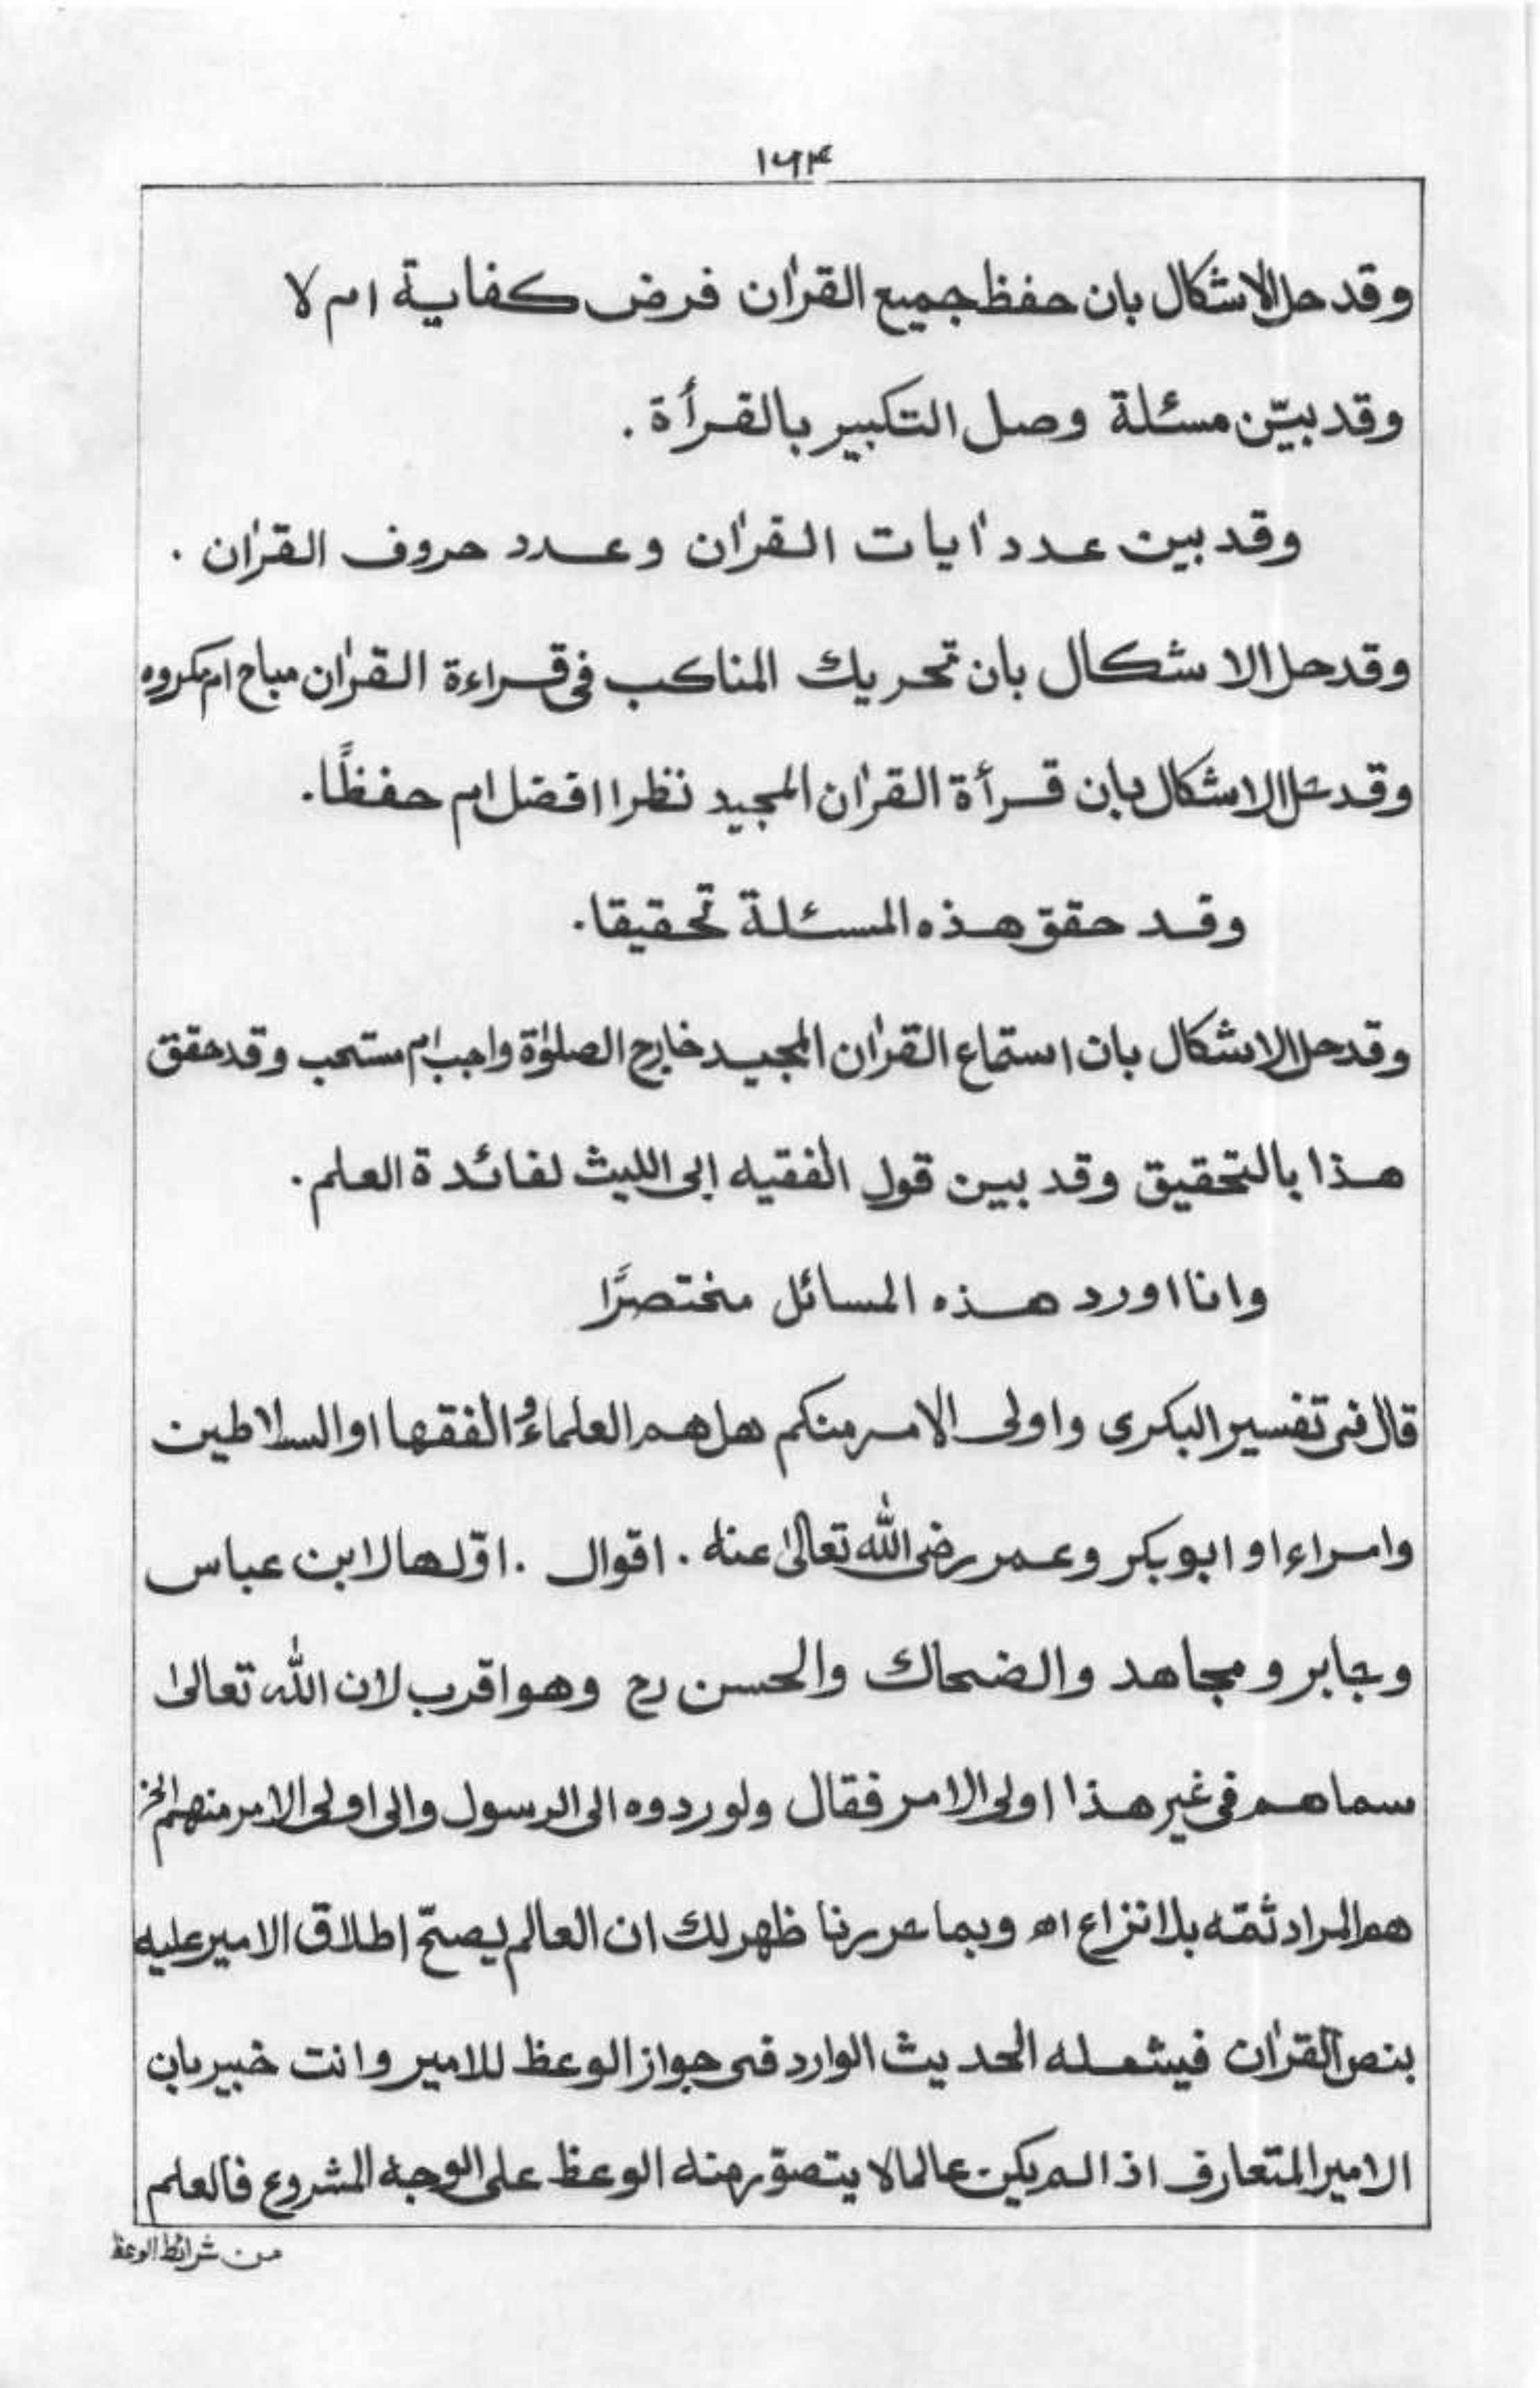 ۱۶۴
وقد حل الاشكال بان حفظ جميع القرٰان فرض كفاية ام لا
وقد بيّن مسئلة وصل التكبير بالقرأة .
وقد بين عدد اٰيات القرٰان وعدد حروف القرٰان .
وقد حل الاشكال بان تحريك المناكب فى قراءة القرٰان مباح ام مكروه
وقد حل الاشكال بان قرأة القرٰان المجيد نظرا افضل ام حفظًا.
وقد حقق هذه المسئلة تحقيقا.
وقد حل الاشكال بان استماع القرٰان المجيد خارج الصلوٰة واجب ام مستحب وقد حقق
هذا بالتحقيق وقد بين قول الفقيه ابى الليث لفائدة العلم.
وانا اورد هذه المسائل مختصرًا
قال فى تفسير البكرى واولى الامر منكم هل هم العلماء والفقها او السلاطين
وامراء او ابو بكر وعمر رضى الله تعالىٰ عنه . اقوال . اوّلها لابن عباس
وجابر و مجاهد والضحاك والحسن رح وهو اقرب لان الله تعالىٰ
سماهم فى غير هذا اولى الامر فقال ولو ردوه الى الرسول والى اولى الامر منهم الخ
هم المراد ثمّه بلا نزاع اه وبما حررنا ظهر لك ان العالم يصحّ اطلاق الامير عليه
بنص القرٰان فيشمله الحديث الوارد فى جواز الوعظ للامير وانت خبير بان
الامير المتعارف اذا لم يكن عالما لا يتصوّر منه الوعظ على الوجه المشروع فالعلم
من شرائط الوعظ